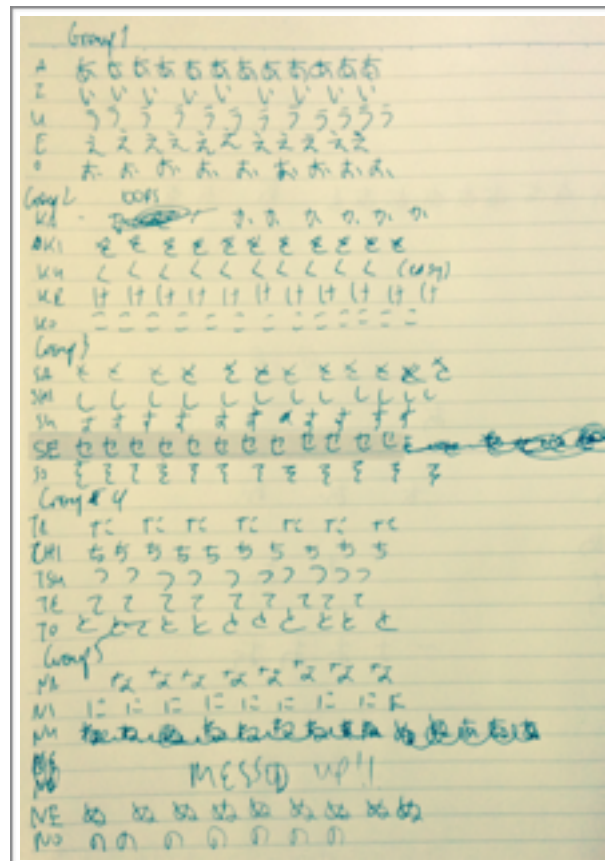 Group 1
A あ あ あ あ あ あ あ あ あ あ あ
I い い い い い い い い い
U う う う う う う う う う う う
E え え え え え え え え え え
O お お お お お お お お
Group 2 OOPS
KA か か か か か か
KI き き き き き き き き き き き
KU く く く く く く く く く く (easy)
KE け け け け け け け け け け
KO こ こ こ こ こ こ こ こ こ こ こ
Group 3
SA さ さ さ さ さ さ さ さ さ さ さ さ
SHI し し し し し し し し し し し し
SU す す す す す す す す す す
SE せ せ せ せ せ せ せ せ せ せ せ せ
SO そ そ そ そ そ そ そ そ そ そ そ そ
Group 4
TA た た た た た た
CHI ち ち ち ち ち ち ち ち ち ち
TSU つ つ つ つ つ つ つ つ つ つ
TE て て て て て て て て て
TO と と て と と と と と と と と
Group 5
NA な な な な な な な な
NI に に に に に に に に に
NU
MESSED UP!!
NE ぬ ぬ ぬ ぬ ぬ ぬ ぬ ぬ ぬ
NO の の の の の の の